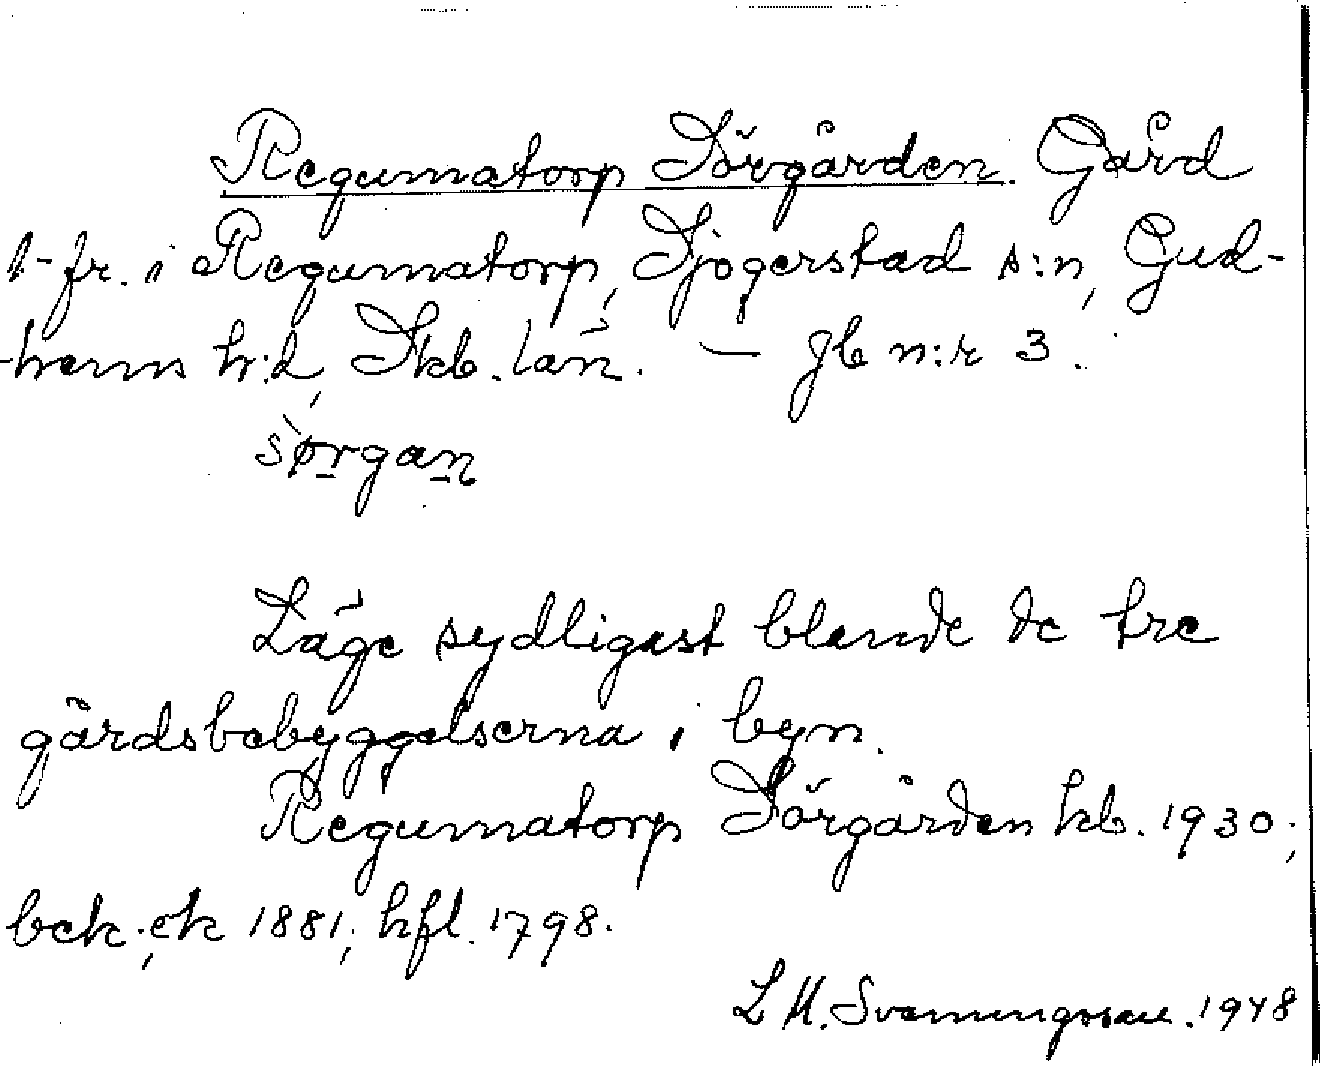 Regumatorp Sörgården. Gård
1-fr. i Regumatorp, Sjogerstad s:n, Gud-
hems h:d, Skb. län. — Jb n:r 3.
sørgan
Läge sydligast blande de tre
gårdsbebyggelserna i byn.
Regumatorp Sörgården kb. 1930;
bek; ek 1881; hfl. 1798.
L M. Svenningsson. 1948